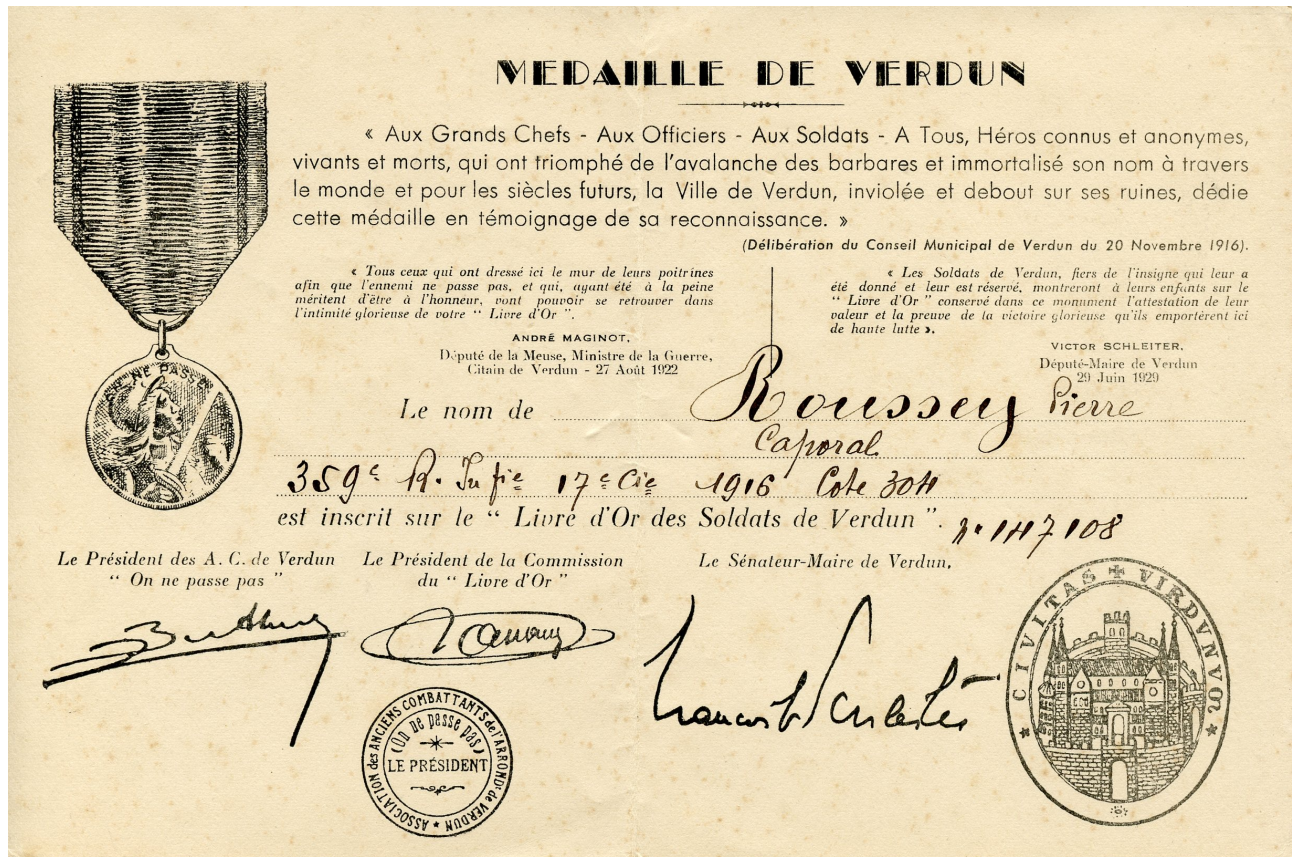 MEDAILLE DE VERDUN
« Aux Grands Chefs - Aux Officiers - Aux Soldats - A Tous, Héros connus et anonymes,
vivants et morts, qui ont triomphé de l'avalanche des barbares et immortalisé son nom à travers
le monde et pour les siècles futurs, la Ville de Verdun, inviolée et debout sur ses ruines, dédie
cette médaille en témoignage de sa reconnaissance. »
(Délibération du Conseil Municipal de Verdun du 20 Novembre 1916).
« Tous ceux qui ont dressé ici le mur de leurs poitrines
afin que l'ennemi ne passe pas, et qui, ayant été à la peine
méritent d'être à l'honneur, vont pouvoir se retrouver dans
l'intimité glorieuse de votre “ Livre d'Or ”.
ANDRÉ MAGINOT,
Député de la Meuse, Ministre de la Guerre,
Citain de Verdun - 27 Août 1922
« Les Soldats de Verdun, fiers de l'insigne qui leur a
été donné et leur est réservé, montreront à leurs enfants sur le
“ Livre d'Or ” conservé dans ce monument l'attestation de leur
valeur et la preuve de la victoire glorieuse qu'ils emportèrent ici
de haute lutte ».
VICTOR SCHLEITER,
Député-Maire de Verdun
29 Juin 1929
ON NE PASSE
Le nom de Roussey Pierre
Caporal
359e R. Infie 17e Cie 1916 Cote 304
est inscrit sur le “ Livre d'Or des Soldats de Verdun ”. No 147108
Le Président des A. C. de Verdun
“ On ne passe pas ”
Le Président de la Commission
du “ Livre d'Or ”
Le Sénateur-Maire de Verdun,
François Schleiter
ASSOCIATION des ANCIENS COMBATTANTS de l'ARRONDt de VERDUN
(On ne passe pas)
LE PRÉSIDENT
CIVITAS VIRDVNVM